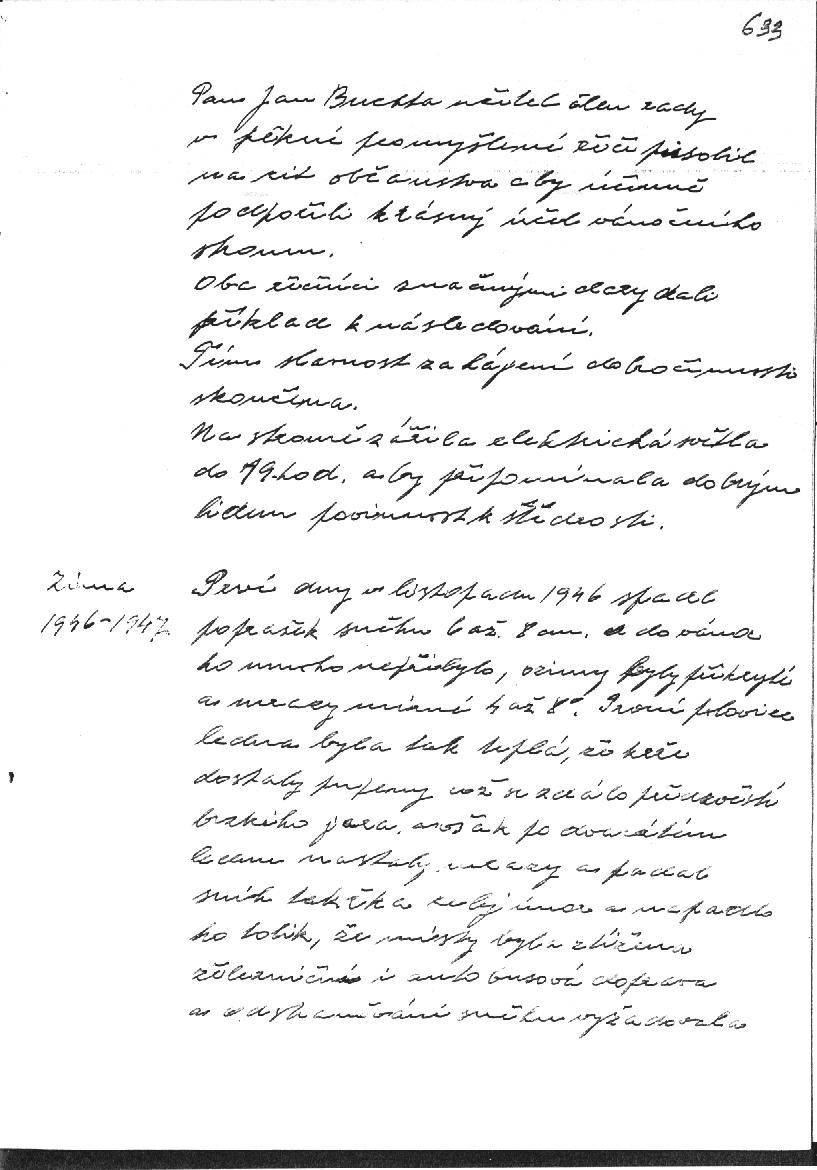 633
Pan Jan Buchta učitel člen rady
v pěkné promyšlené řeči působil
na cit občanstva aby účinně
podpořili krásný účel vánočního
stromu.
Oba řečníci značnými dary dali
příklad k následování.
Tím slavnost zahájení dobročinnosti
skončena.
Na stromě zářila elektrická světla
do 19 hod. aby připomínala dobrým
lidem povinnost k štědrosti.
Zima
1946-1947
První dny v listopadu 1946 spadl
poprašek sněhu 6 až 8 cm. a do vánoc
ho mnoho nepřibylo, ozimy byly přikryté
a mrazy mírné 4 až 8°. První polovice
ledna byla tak teplá, že keře
dostaly pupeny což se zdálo předzvěstí
brzkého jara. avšak po dvacátém
lednu nastaly mrazy a padal
sníh takřka celý únor a napadlo
ho tolik, že místy byla ztížena
železniční i autobusová doprava
a odstraňování sněhu vyžadovala